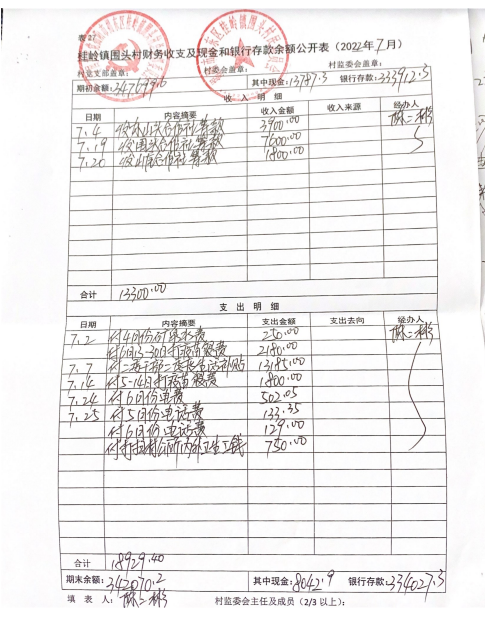 表27
桂岭镇围头村财务收支及现金和银行存款余额公开表（2022年7月）
村党支部盖章： 村委会盖章： 村监委会盖章：
期初余额：347699.6 其中现金：13787.3 银行存款：333912.3
收 入 明 细
日期 内容摘要 收入金额 收入来源 经办人
7.4 3900.00 陈二彬
7.19 收围头合作社筹款 7600.00
7.20 1800.00
合计 13300.00
支 出 明 细
日期 内容摘要 支出金额 支出去向 经办人
7.2 付4月份矿泉水费 250.00 陈二彬
付6月15-30日打疫苗餐费 2180.00
7.7 13185.00
7.14 付5-14日打疫苗餐费 1800.00
7.24 付6月份电费 502.05
7.25 付5月份电话费 133.35
付6月份电话费 129.00
付打扫村公所内外卫生工钱 750.00
合计 18929.40
期末余额：342070.2 其中现金：8042.9 银行存款：334027.3
填 表 人：陈二彬 村监委会主任及成员（2/3以上）：